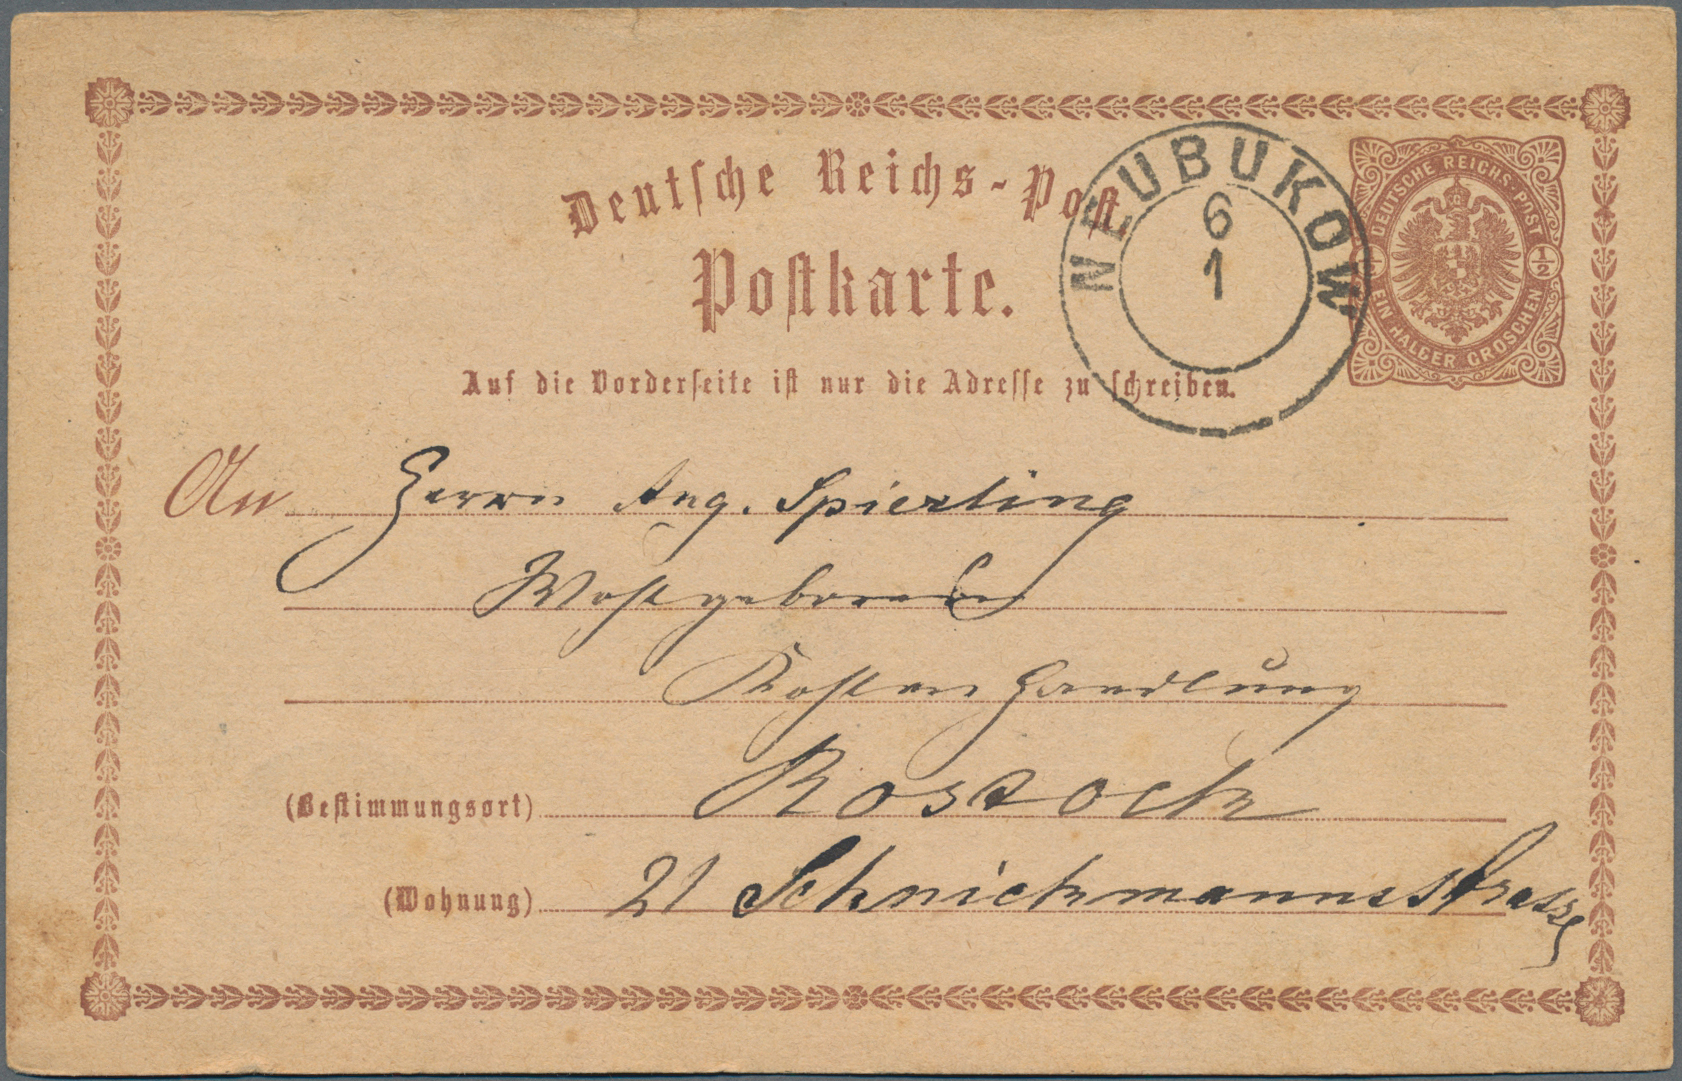 Deutsche Reichs-Post
Postkarte.
NEUBUKOW
6
1
DEUTSCHE REICHS-POST
½ ½
EIN HALBER GROSCHEN
Auf die Vorderseite ist nur die Adresse zu schreiben.
An Herrn Aug. Spierling
Wohlgeboren
Handlung
(Bestimmungsort) Rostock
(Wohnung) 21 Schnickmannsstrasse